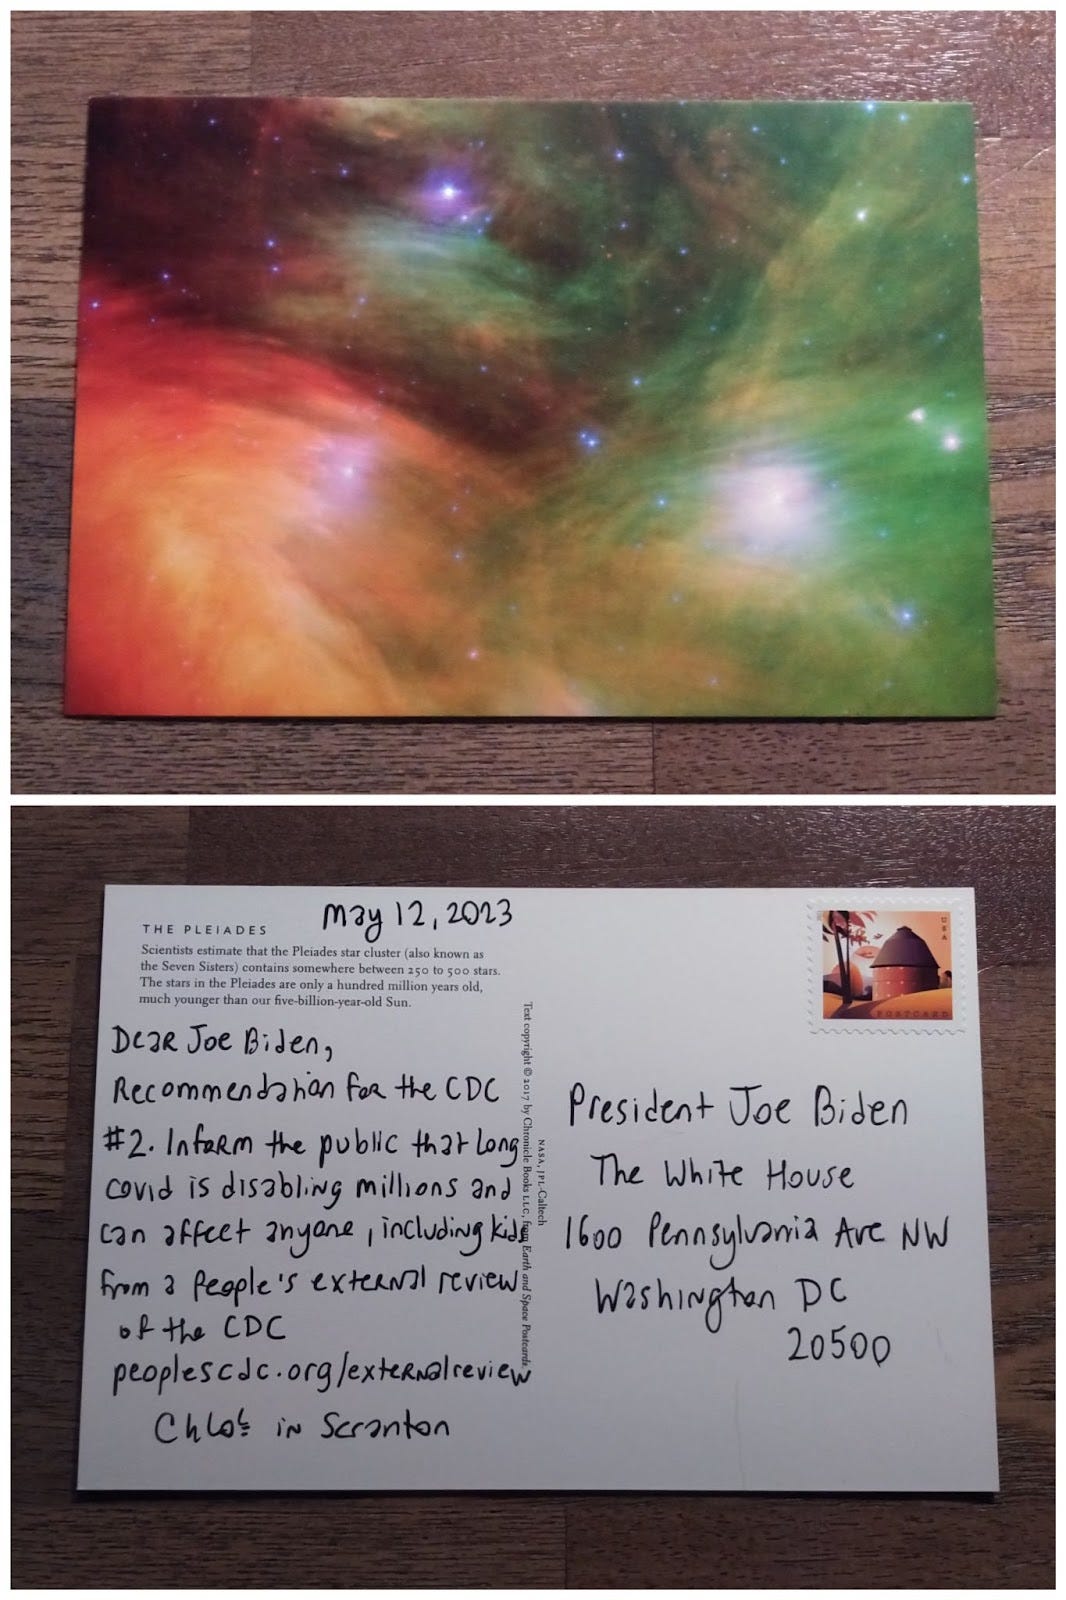 May 12, 2023
THE PLEIADES
Scientists estimate that the Pleiades star cluster (also known as
the Seven Sisters) contains somewhere between 250 to 500 stars.
The stars in the Pleiades are only a hundred million years old,
much younger than our five-billion-year-old Sun.
Dear Joe Biden,
Recommendation for the CDC
#2. Inform the public that long
covid is disabling millions and
can affect anyone, including kids
from a People's external review
of the CDC
peoplescdc.org/externalreview
Chloë in Scranton
Text copyright © 2017 by Chronicle Books LLC, from Earth and Space Postcards.
NASA, JPL-Caltech
USA
POSTCARD
President Joe Biden
The White House
1600 Pennsylvania Ave NW
Washington DC
20500